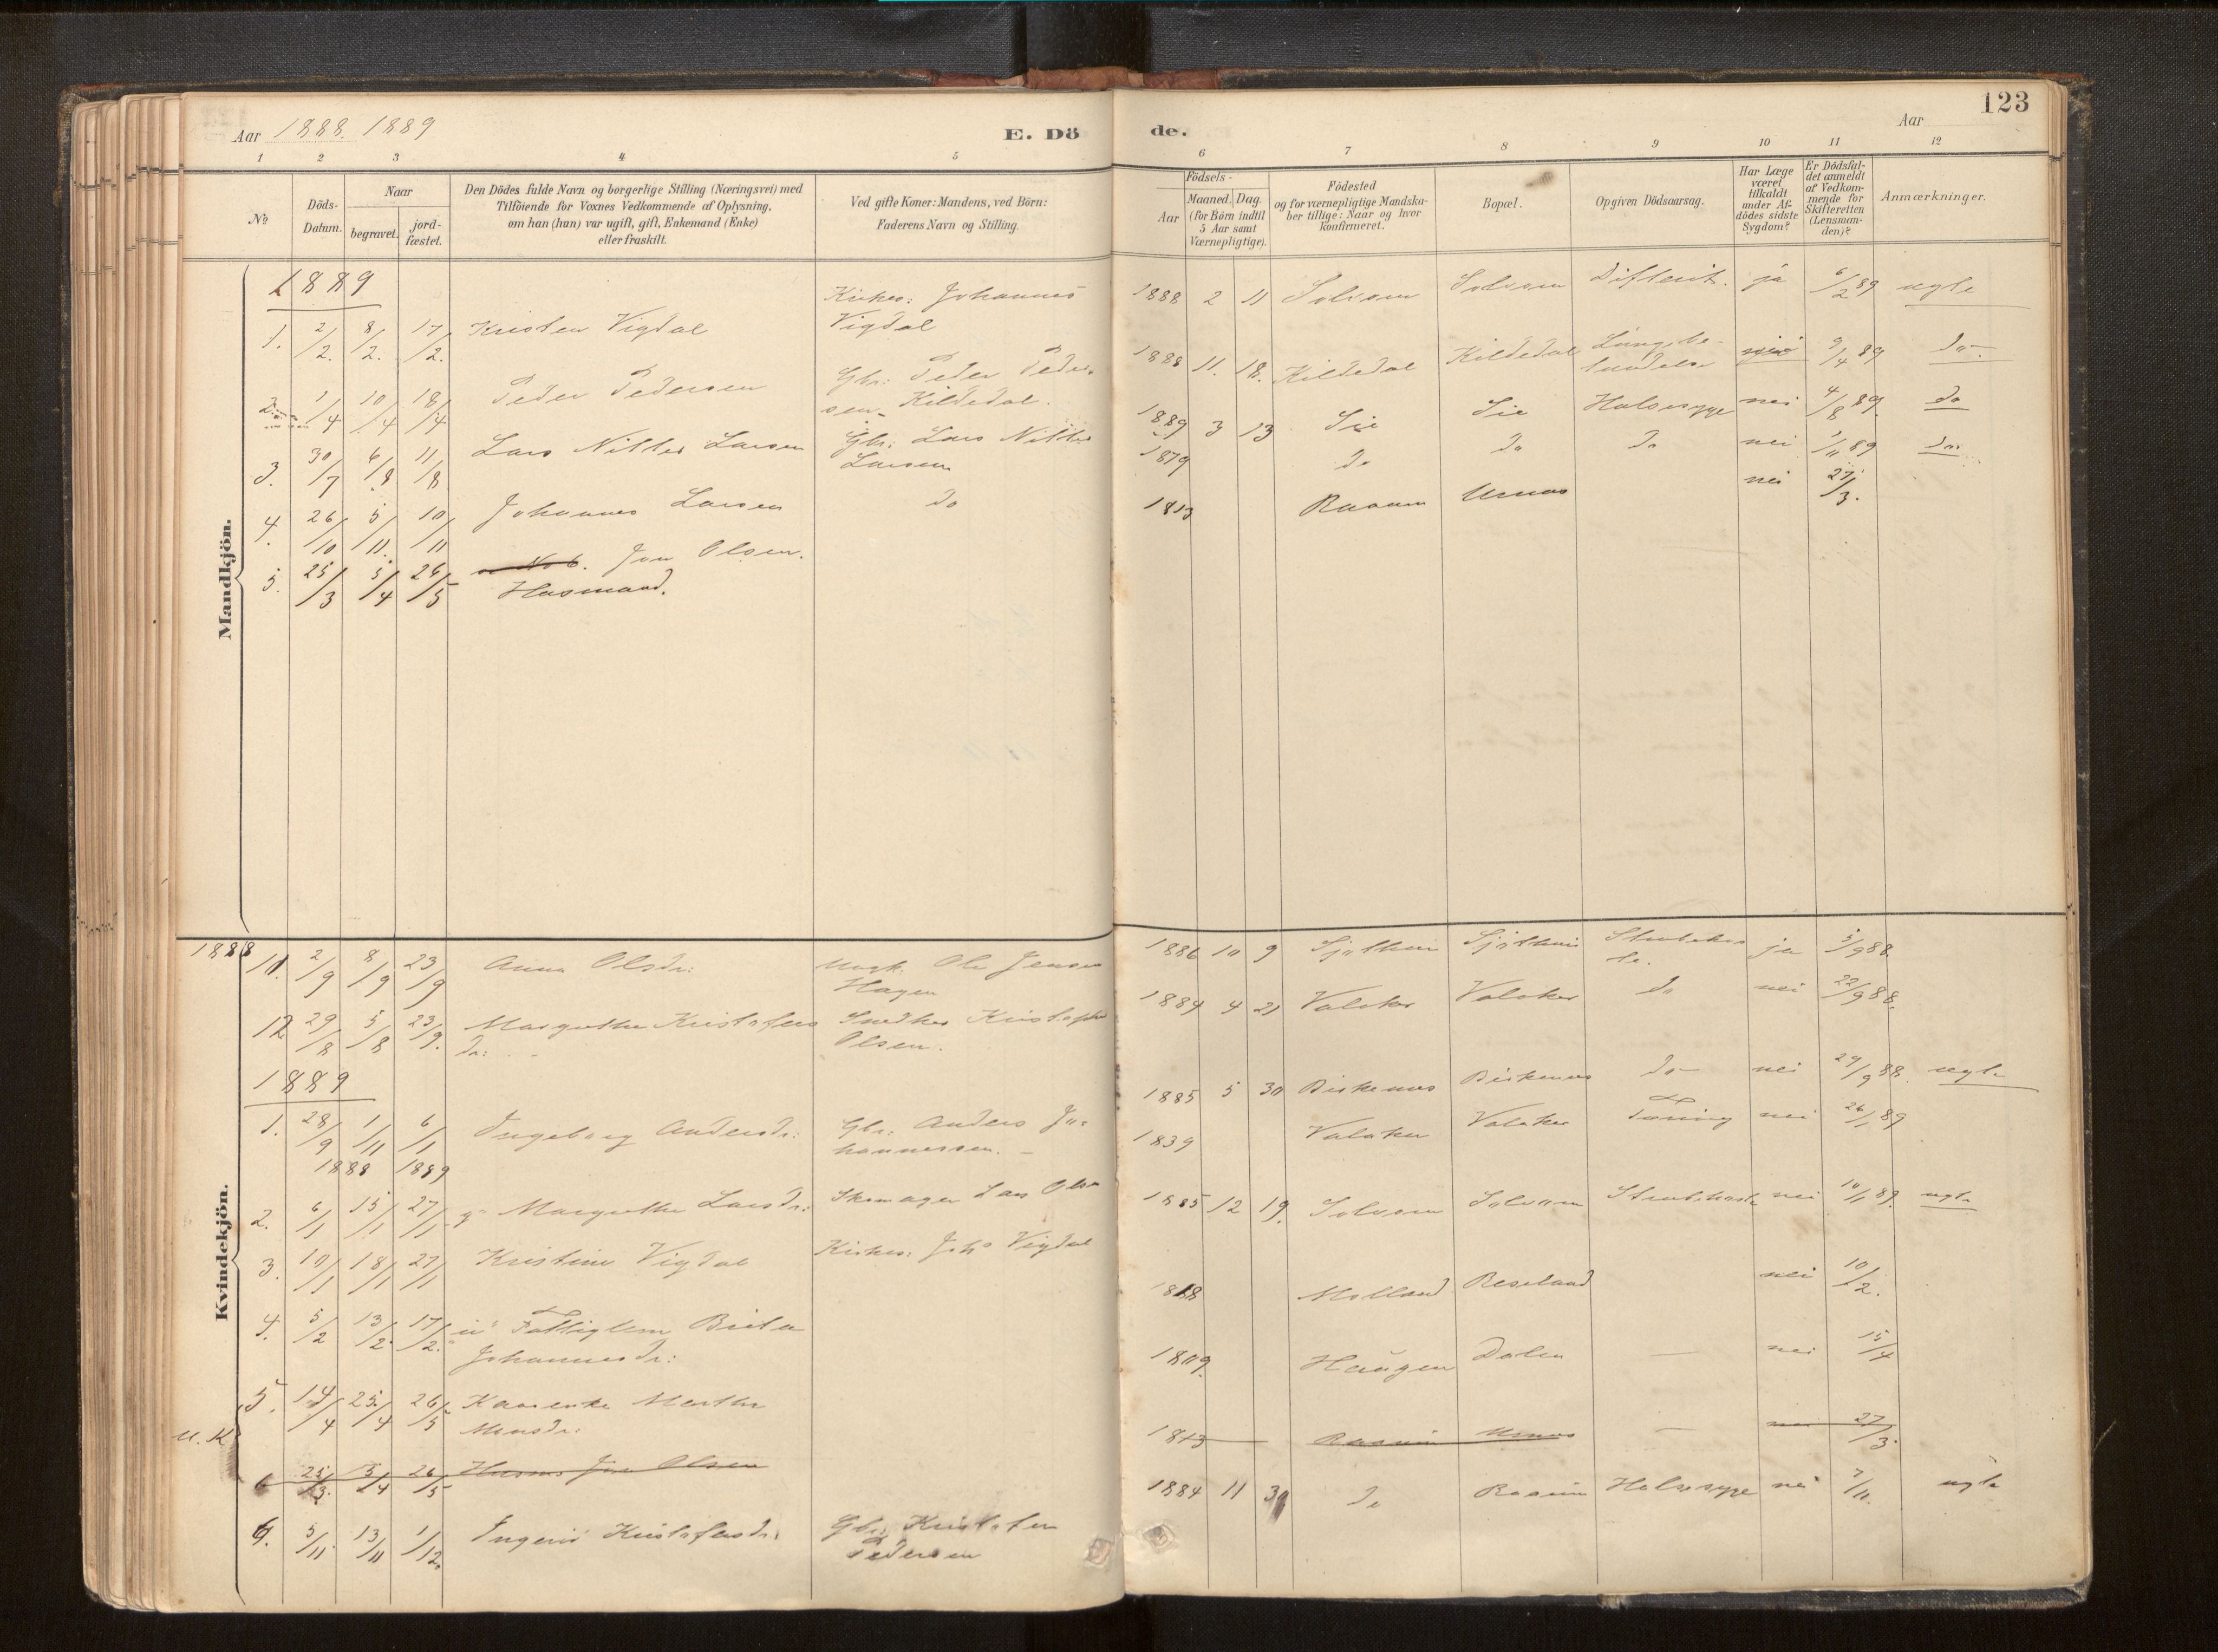 123
Aar 1888. 1889
E. Dö
de.
Aar
1 2 3 4 5 6 7 8 9 10 11 12
No
Döds-
Datum.
Naar
begravet.
jord-
fæstet.
Den Dödes fulde Navn og borgerlige Stilling (Næringsvei) med
Tilföiende for Voxnes Vedkommende af Oplysning,
om han (hun) var ugift, gift, Enkemand (Enke)
eller fraskilt.
Ved gifte Koner: Mandens, ved Börn:
Faderens Navn og Stilling.
Födsels-
Aar
Maaned. Dag.
(for Börn indtil
5 Aar samt
Værnepligtige).
Födested
og for værnepligtige Mandska-
ber tillige: Naar og hvor
konfirmeret.
Bopæl.
Opgiven Dödsaarsag.
Har Læge
været
tilkaldt
under Af-
dödes sidste
Sygdom?
Er Dödsfal-
det anmeldt
af Vedkom-
mende for
Skifteretten
(Lensman-
den)?
Anmærkninger.
Mandkjön.
1889
1. 2/2. 8/2. 17/2. Kristen Vigdal Kirkes: Johannes
Vigdal 1888 2 11 Solvorn Solvorn Difterit. ja 6/2 89 ugte
2. 1/4 10/4 18/4 Peder Pedersen Gbr: Peder Peder-
sen Kildedal. 1888 11. 18. Kildedal Kildedal Lungebe-
tændelse nei 9/4 89 do.
3. 30/7 6/8 11/8 Lars Nitter Larsen Gbr: Lars Nitter
Larsen 1889 3 13 Sie Sie Halssyge nei 4/8 89. do
4. 26/10 5/11. 10/11 Johannes Larsen do 1879 do do do nei 1/11 89 do.
5. 25/3 5/4 26/5 No 6. Jon Olsen.
Husmand. 1813 Raaum Urnes nei 27/3.
Kvindekjön.
1888
11. 2/9 8/9 23/9 Anna Olsdr: Ole Jensen
Hagen 1886 10 9 Sjøthun Sjøthun Strubehos
te. ja 5/9 88.
12 29/8 5/8 23/9. Margrethe Kristofers
dr: Snedker Kristofer
Olsen. 1884 4 21 Valaker Valaker do nei 22/9 88.
1889
1. 28/9 1/11 6/1 Ingeborg Andersdr: Gbr: Anders Jo-
hannessen. 1885 5 30 Birkenæs Birkenæs do nei 29/9 88. ugte
1888 1889
2. 6/1 15/1 27/1 g. Margrethe Larsdr: Skomager Lars Olsen 1839 Valaker Valaker Tæring nei 26/1 89
3. 10/1 18/1 27/1 Kristine Vigdal Kirkes: Johs Vigdal 1885 12 19. Solvorn Solvorn Strubehoste nei 10/1 89. ugte
4. 5/2 13/2. 17/2. Fattiglem Brita
Johannesdr: 1818 Molland Beseland nei 10/2.
5. 14/4 25/4 26/5 Kaarenke Marthe
Monsdr: 1809. Haugen Dalen — nei 15/4
U. K
6 25/3. 5/4 26/5 Husm. Jon Olsen 1813 Raaum Urnes — nei 27/3.
6. 5/11. 13/11 1/12. Ingerid Kristofersdr. Gbr. Kristofer
Pedersen 1884 11 30 do Raaum Halssyge nei 7/11. ugte